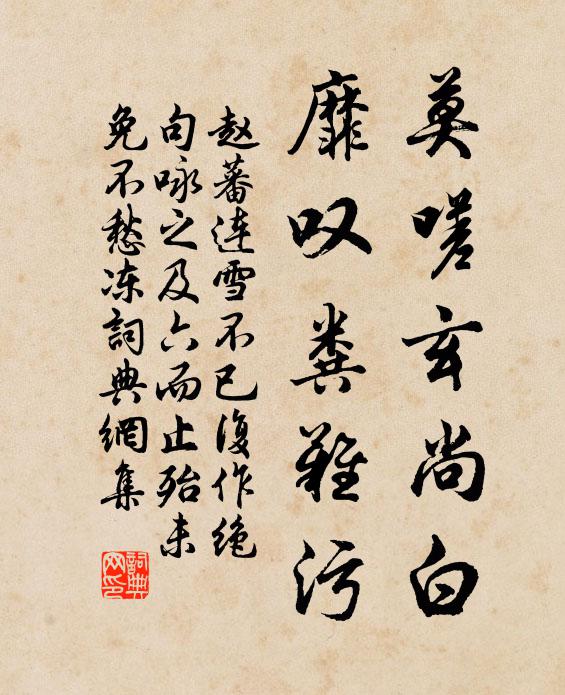 莫嗟玄尚白
靡叹粪难污
赵蕃连雪不已復作绝
句咏之及六而止殆未
免不愁冻詞典網集
詞典
网印